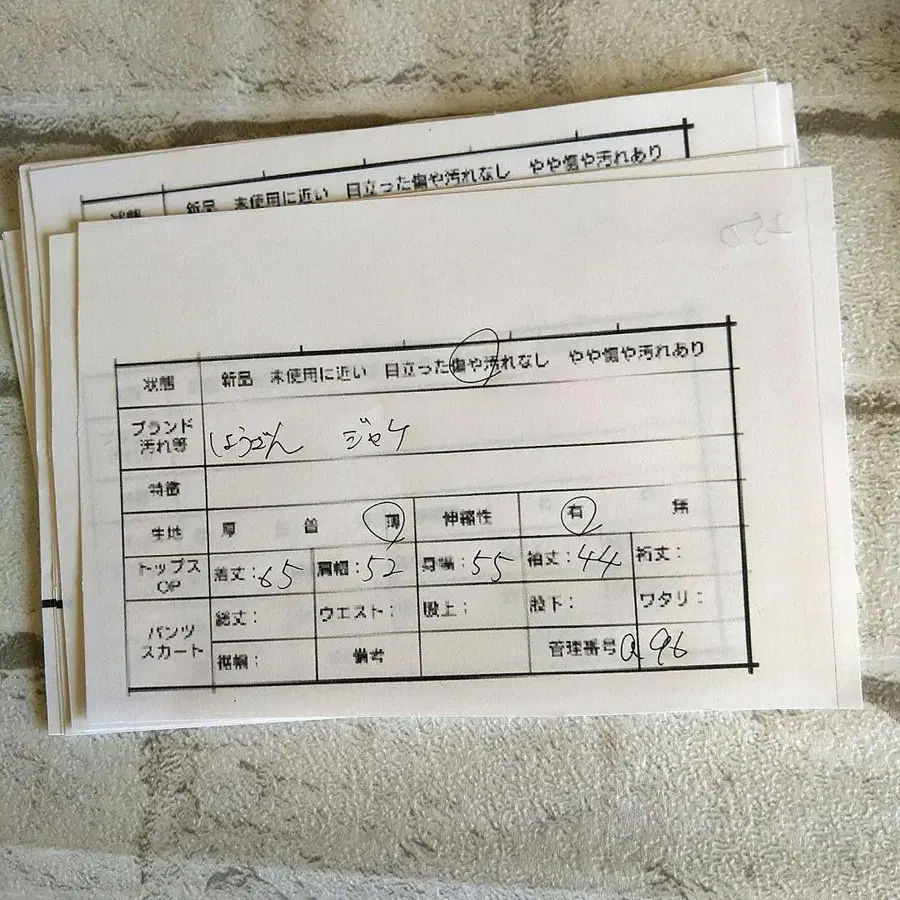 状態 新品 未使用に近い 目立った傷や汚れなし やや傷や汚れあり
状態 新品 未使用に近い 目立った傷や汚れなし やや傷や汚れあり
ブランド
汚れ等 しょうざん ジャケ
特徴
生地 厚 普 薄 伸縮性 有 無
トップス
OP 着丈:65 肩幅:52 身幅:55 袖丈:44 裄丈:
パンツ
スカート 総丈: ウエスト: 股上: 股下: ワタリ:
裾幅: 備考 管理番号 Q96